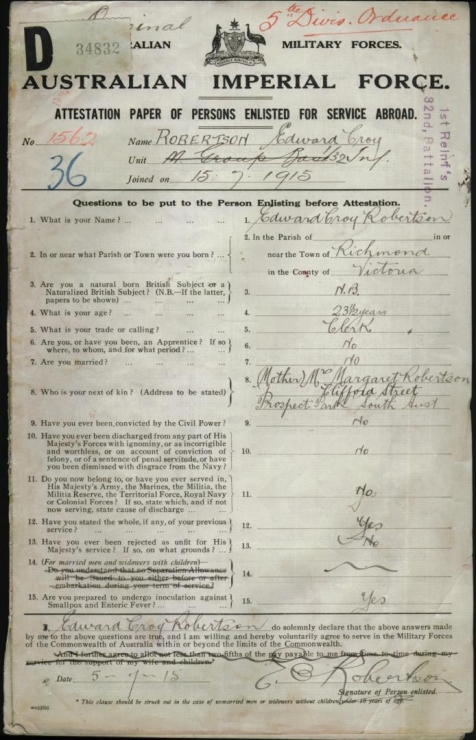 D
34832
Original
5th Divis. Ordnance
ALIAN MILITARY FORCES.
AUSTRALIAN IMPERIAL FORCE.
ATTESTATION PAPER OF PERSONS ENLISTED FOR SERVICE ABROAD.
1st Reinf's
32nd. Battalion.
No. 1562 Name ROBERTSON Edward Croy
36
Unit 32 Inf.
Joined on 15-7-1915
Questions to be put to the Person Enlisting before Attestation.
1. What is your Name? ... 1. Edward Croy Robertson
2. In or near what Parish or Town were you born? ... 2. In the Parish of in or
near the Town of Richmond
in the County of Victoria
3. Are you a natural born British Subject or a
Naturalized British Subject? (N.B.—If the latter,
papers to be shown) ... 3. N.B.
4. What is your age? ... 4. 23½ years
5. What is your trade or calling? ... 5. Clerk
6. Are you, or have you been, an Apprentice? If so
where, to whom, and for what period? ... 6. No
7. Are you married? ... 7. No
8. Who is your next of kin? (Address to be stated) 8. (Mother) Mrs Margaret Robertson
Clifford Street
Prospect South Aust
9. Have you ever been convicted by the Civil Power? 9. No
10. Have you ever been discharged from any part of His
Majesty's Forces with ignominy, or as incorrigible
and worthless, or on account of conviction of
felony, or of a sentence of penal servitude, or have
you been dismissed with disgrace from the Navy? 10. No
11. Do you now belong to, or have you ever served in,
His Majesty's Army, the Marines, the Militia, the
Militia Reserve, the Territorial Force, Royal Navy
or Colonial Forces? If so, state which, and if not
now serving, state cause of discharge ... 11. No
12. Have you stated the whole, if any, of your previous
service? ... 12. Yes
13. Have you ever been rejected as unfit for His
Majesty's service? If so, on what grounds? ... 13. No
14. (For married men and widowers with children)
Do you understand that no Separation Allowance
will be issued to you either before or after
embarkation during your term of service? 14.
15. Are you prepared to undergo inoculation against
Smallpox and Enteric Fever? ... 15. Yes
I, Edward Croy Robertson do solemnly declare that the above answers made
by me to the above questions are true, and I am willing and hereby voluntarily agree to serve in the Military Forces
of the Commonwealth of Australia within or beyond the limits of the Commonwealth.
And I further agree to allot not less than two-fifths of the pay payable to me from time to time during my
service for the support of my wife and children.
Date 5-7-15
E C Robertson
Signature of Person enlisted.
* This clause should be struck out in the case of unmarried men or widowers without children under 18 years of age.